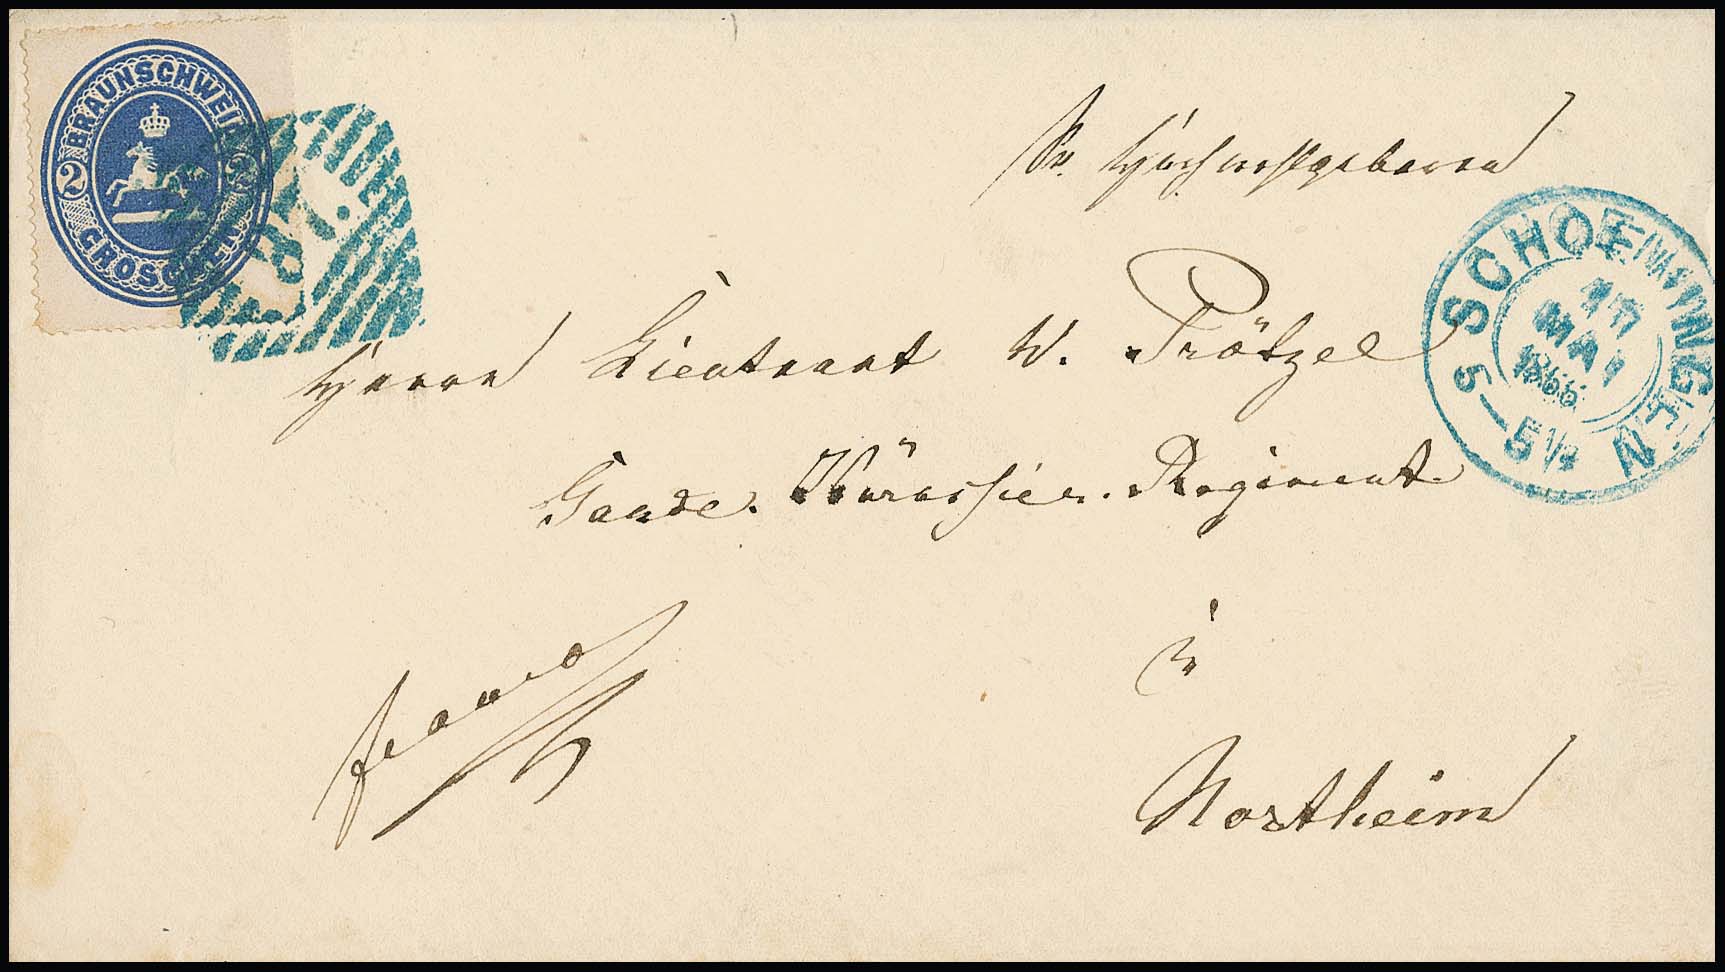 BRAUNSCHWEIG
2 2
GROSCHEN
37.
Sr. Hochwohlgeboren
SCHOENINGEN
17
MAI
1866
5-5½
Herrn Lieutnant v. Trötzel
Garde. Kürassier. Regiment.
in
Northeim
franco